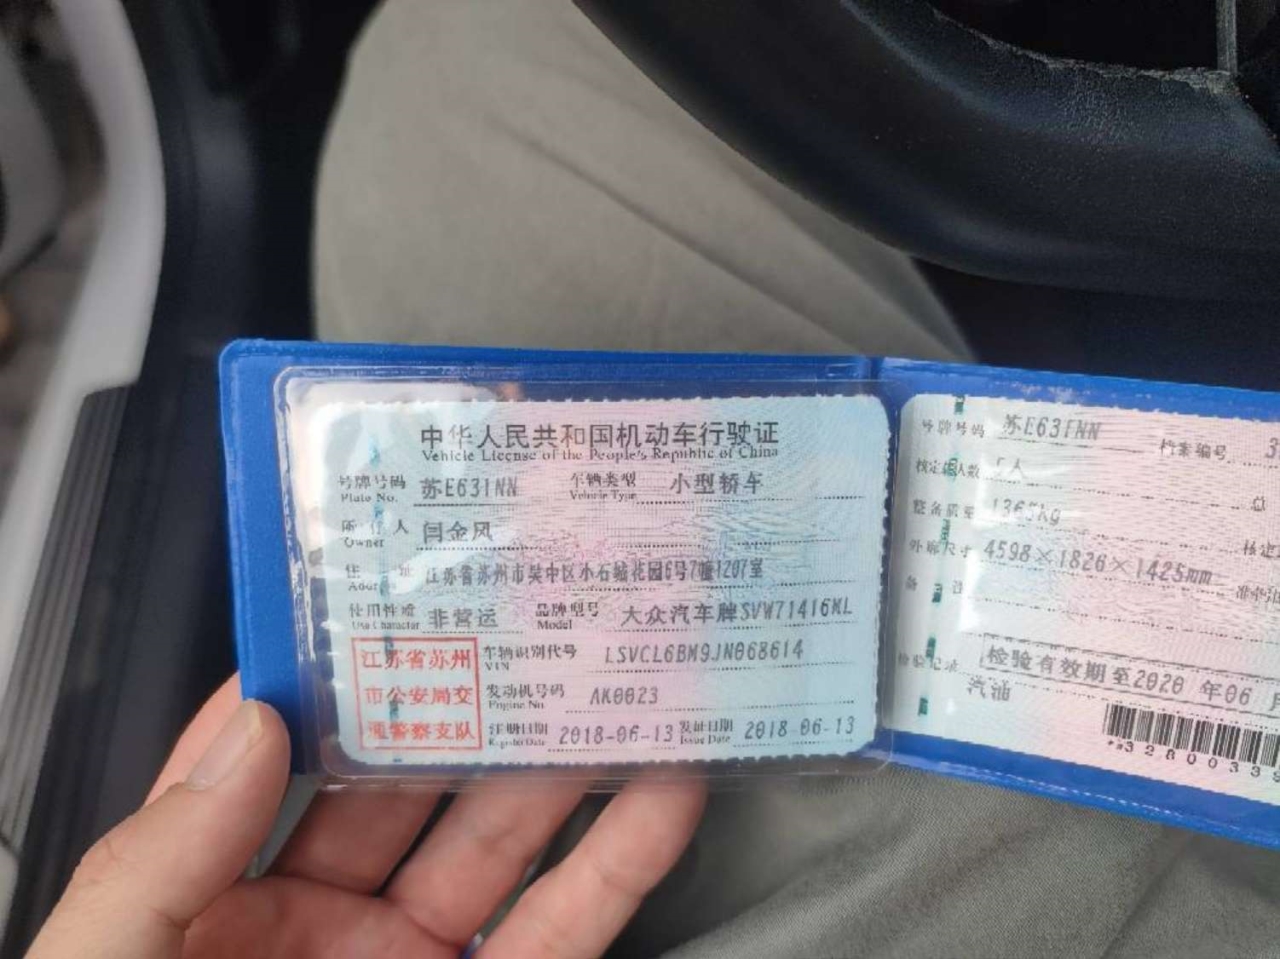 中华人民共和国机动车行驶证
Vehicle License of the People's Republic of China
号牌号码 苏E631NN 车辆类型 小型轿车
Plate No. Vehicle Type
所有人 闫金风
Owner
住址 江苏省苏州市吴中区小石城花园6号7幢1207室
Address
使用性质 非营运 品牌型号 大众汽车牌SVW71416KL
Use Character Model
江苏省苏州
市公安局交
通警察支队
车辆识别代号 LSVCL6BM9JN068614
VIN
发动机号码 AK0023
Engine No.
注册日期 2018-06-13 发证日期 2018-06-13
Register Date Issue Date
号牌号码 苏E631NN 档案编号 3
核定载人数 5人 总
整备质量 1365kg 核定
外廓尺寸 4598×1826×1425mm 准牵引
备注
检验记录 检验有效期至2020年06月
汽油
*3280033